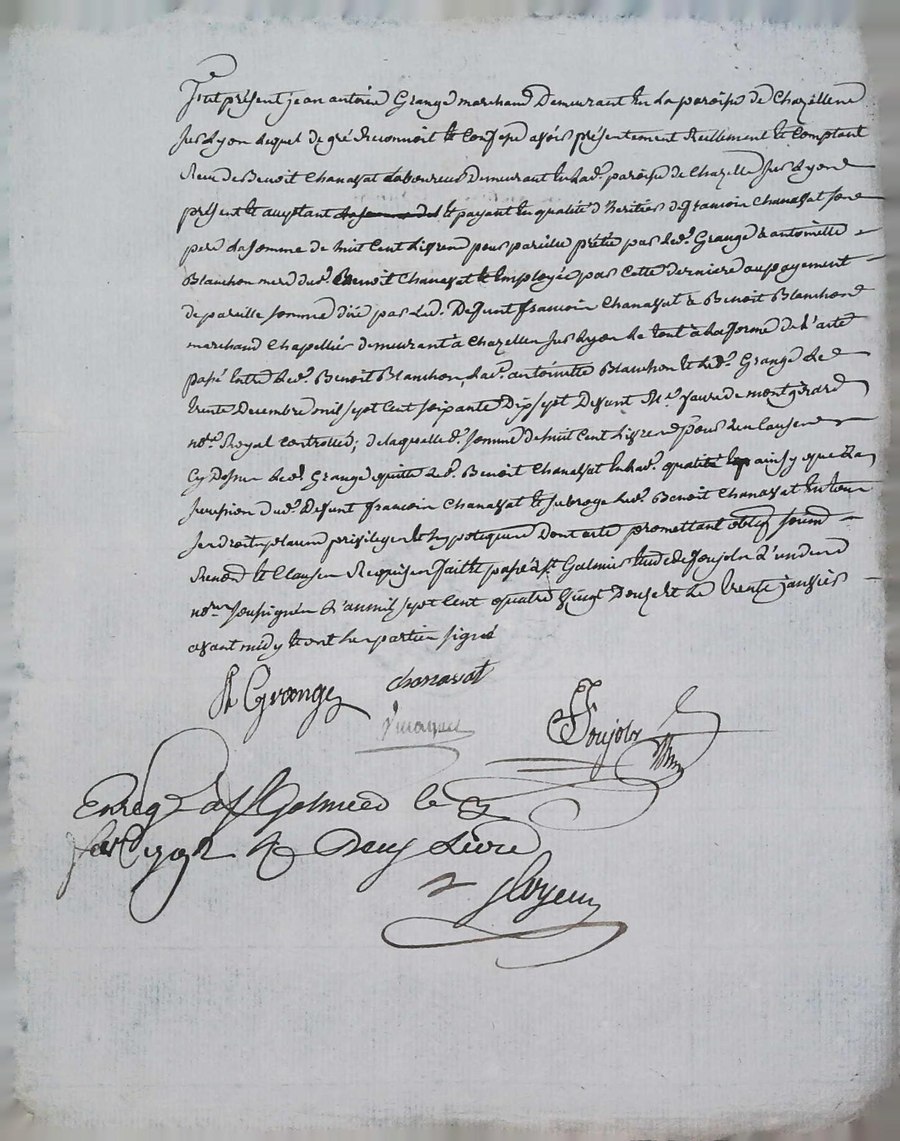 fut présent jean antoine Grange marchand Demeurant en La paroisse de Chazelle
sur Lyon lequel de gré Reconnoit et Confesse avoir présentement Réellement et Comptant
Receu de Benoit Chanassat Laboureur Demeurant en lad. paroisse de Chazelle sur Lyon
présent et acceptant et payant en qualité d'heritier de francois Chanassat son
pere La somme de huit Cent Livres pour pareille prétée par led. Grange à antoinette
Blanchon mere dud. Benoit Chanassat et Employée par Cette derniere au payement
de pareille somme düe par led. Defunt francois Chanassat à Benoit Blanchon
marchand Chapellier demeurant à Chazelles sur Lyon Le tout à La forme de L'acte
passé Entre led. Benoit Blanchon Lad. antoinette Blanchon et led. Grange Le
trente Decembre mil sept Cent soixante Dix sept Devant M.e faure de montgirard
no.re Royal Controllé; de laquelle d. somme de huit Cent Livres pour les Causes
Cy Dessus led. Grange quitte led. Benoit Chanassat en lad. qualité ainsy que La
succession dud. Defunt francois Chanassat et subroge led. Benoit Chanassat en tous
ses droits places privileges et hypoteques Dont acte promettant oblig. soum.
Renon. et Clauses Requises fait et passé à S.t Galmier Etude de Soujolx L'un des
no.res soussignés L'an mil sept Cent quatre Vingt Douze et Le trente janvier
avant midy et ont Les parties signé
Grange chanassat
Soujolx
Enreg.é à S.t Galmier le
1792 R. Deux Livre